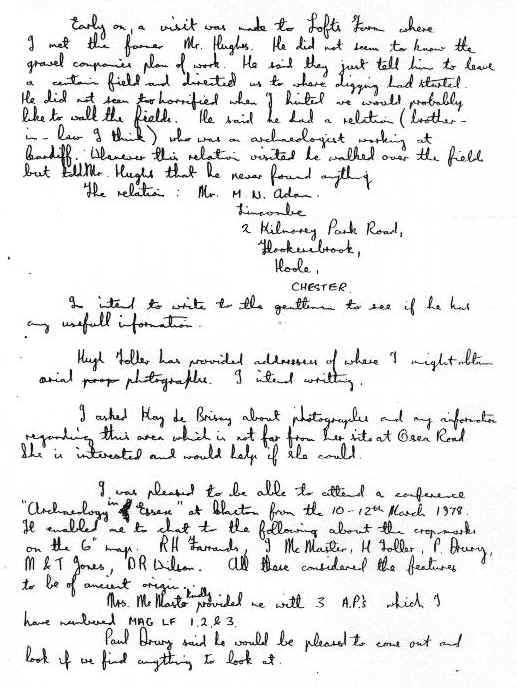 Early on, a visit was made to Lofts Farm where
I met the farmer Mr. Hughes. He did not seem to know the
gravel companies plan of work. He said they just tell him to leave
a certain field and directed us to where digging had started.
He did not seem too horrified when I hinted we would probably
like to walk the fields. He said he had a relation (brother-
in-law I think) who was a archaeologist working at
Cardiff. Whenever this relation visited he walked over the field
but told Mr. Hughs that he never found anything
The relation: Mr. M N. Adan.
2 Kilmorey Park Road,
Hookersbrook,
Hoole,
CHESTER.
I intend to write to the gentleman to see if he has
any usefull information.
Hugh Toller has provided addresses of where I might obtain
arial photographs. I intend writting.
I asked Kay de Brisay about photographs and any information
regarding this area which is not far from her site at Osea Road
She is interested and would help if she could.
I was pleased to be able to attend a conference
"Archaeology in Essex" at Clacton from the 10-12th March 1978.
It enabled me to chat to the following about the cropmarks
on the 6" map. RH Farrands, I McMaster, H Toller, P. Drury,
M & T Jones, DR Wilson. All these considered the features
to be of ancient origin.
Mrs. McMaster kindly provided me with 3 A.P.'s which I
have numbered MAG LF 1, 2, & 3.
Paul Drury said he would be pleased to come out and
look if we find anything to look at.